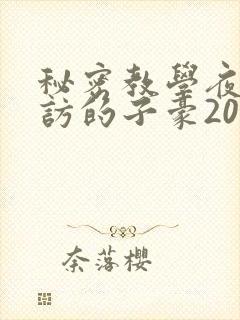 秘密教學夜
訪的子豪20
奈落櫻